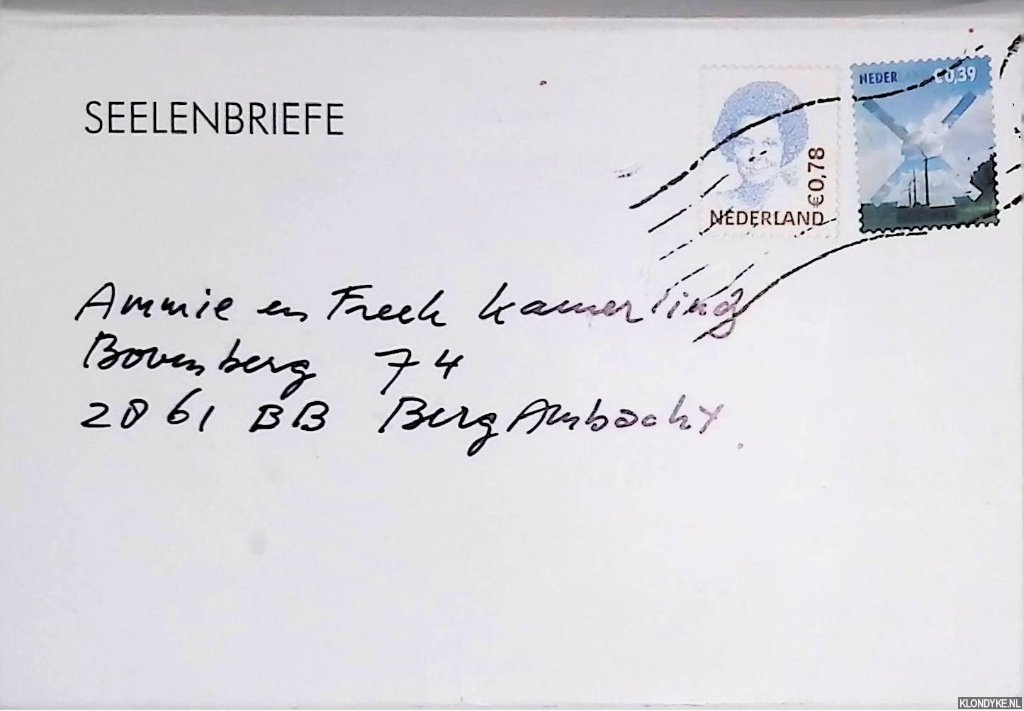 SEELENBRIEFE
NEDERLAND
€0,78
NEDERLAND €0,39
Ammie en Freek Kamerling
Bovenberg 74
2861 BB BergAmbacht
KLONDYKE.NL